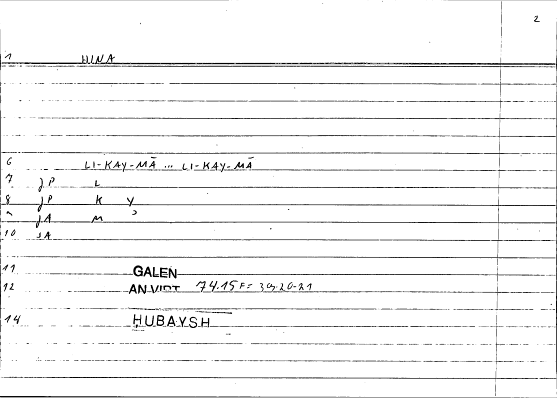 2
1 HINA
6 LI-KAY-MĀ ... LI-KAY-MĀ
7 jP L
8 jP K Y
jA M
10 JA
11 GALEN
12 AN.VIRT 74.15 F= 39.20-21
14 HUBAYSH